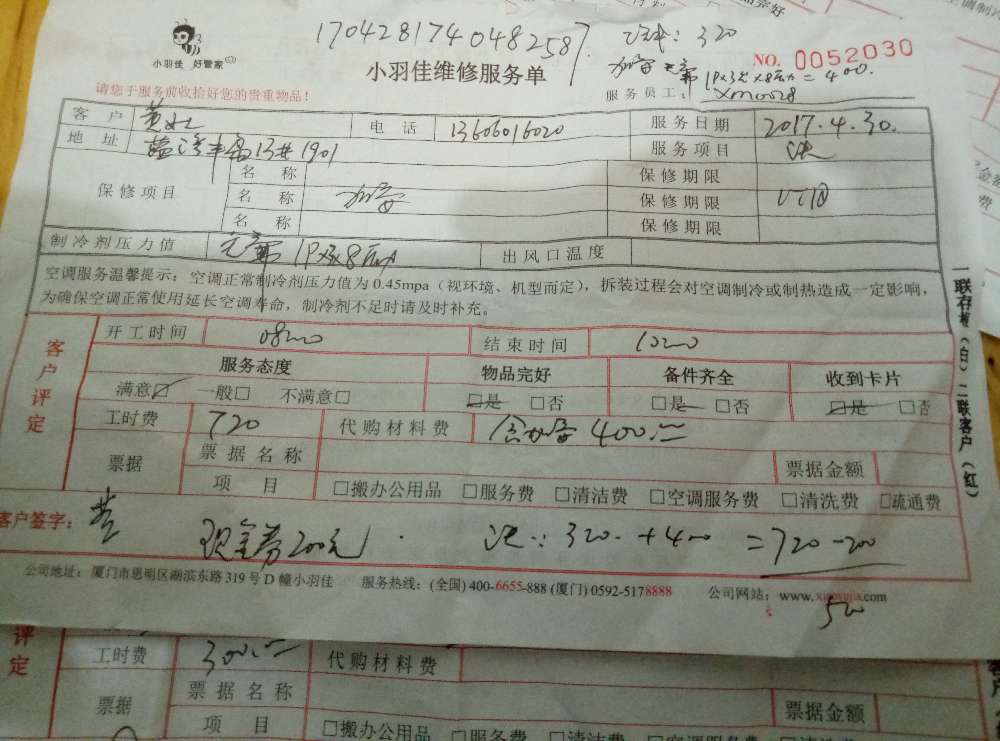 1704281740482587. 320
小羽佳 好管家
小羽佳维修服务单
NO. 0052030
1P×3×8 = 400.
请您于服务前收拾好您的贵重物品!
服务员工: xm0028
客户 黄 电话 13606016020 服务日期 2017.4.30.
地址 1901 服务项目 洗
保修项目 名称 保修期限
名称 加雪 保修期限
名称 保修期限
制冷剂压力值 出风口温度
空调服务温馨提示: 空调正常制冷剂压力值为 0.45mpa (视环境、机型而定), 拆装过程会对空调制冷或制热造成一定影响,
为确保空调正常使用延长空调寿命, 制冷剂不足时请及时补充。
一联存根(白)二联客户(红)
客户评定
开工时间 0800 结束时间 1000
服务态度 物品完好 备件齐全 收到卡片
满意☑ 一般□ 不满意□ □是 □否 □是 □否 □是 □否
工时费 720 代购材料费 含加雪 400.00
票据 票据名称 票据金额
项目 □搬办公用品 □服务费 □清洁费 □空调服务费 □清洗费 □疏通费
客户签字: 黄 现金券200元. 洗: 320. + 400 = 720 - 200
520
公司地址: 厦门市思明区湖滨东路 319 号 D 幢小羽佳 服务热线: (全国) 400-6655-888 (厦门) 0592-5178888 公司网站: www.xiaoyujia.com
评定
工时费 300.00 代购材料费
票据 票据名称 票据金额
项目 □搬办公用品 □服务费 □清洁费 □空调服务费 □清洗费